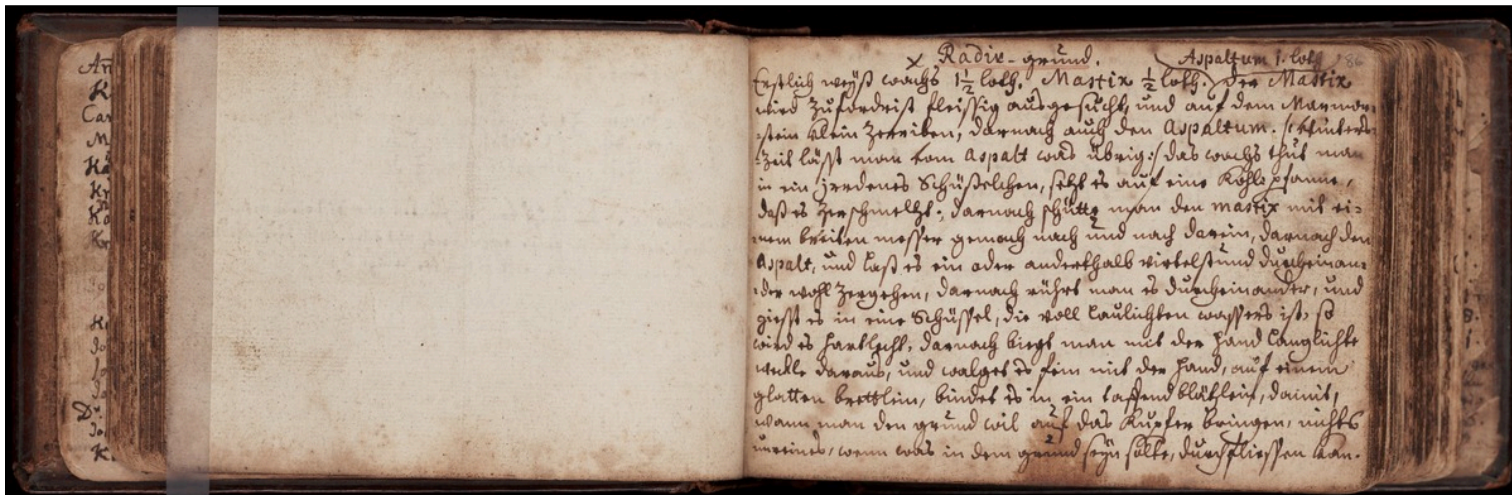 Radir-grund.
Aspaltum 1. loth
86
Erstlich weyß wachs 1½ loth. Mastix ½ loth. Der Mastix
wird zuforderist fleissig ausgesucht, und auf dem Marmor-
-stein klein zerriben, darnach auch den Aspaltum. (: Winters-
-Zeit lässt man vom Aspalt was übrig :) das wachs thut man
in ein jrrdenes Schüßelchen, setzt es auf eine Kohlpfanne,
daß es zerschmeltzt; darnach schütte man den mastix mit ei-
nem breiten messer gemach nach und nach darein, darnach den
Aspalt, und laß es ein oder anderthalb virtelstund durcheinan-
-der wohl zergehen, darnach rührt man es durcheinander, und
giesst es in eine Schüssel, die voll laulichten wassers ist, so
wird es hartlecht, darnach biegt man mit der hand langlichte
weckle daraus, und walget es fein mit der hand, auf einem
glatten brettlein, bindet es in ein taffend blätlein, damit,
wann man den grund wil auf das Kupfer bringen, nichts
unreines, wenn was in dem grund seyn solte, durchfliessen kan.
An
K
Car
M
Ha
Kr
Ka
Kr
Jo
H
Jo
Jo
Jo
D.
Jo
K.